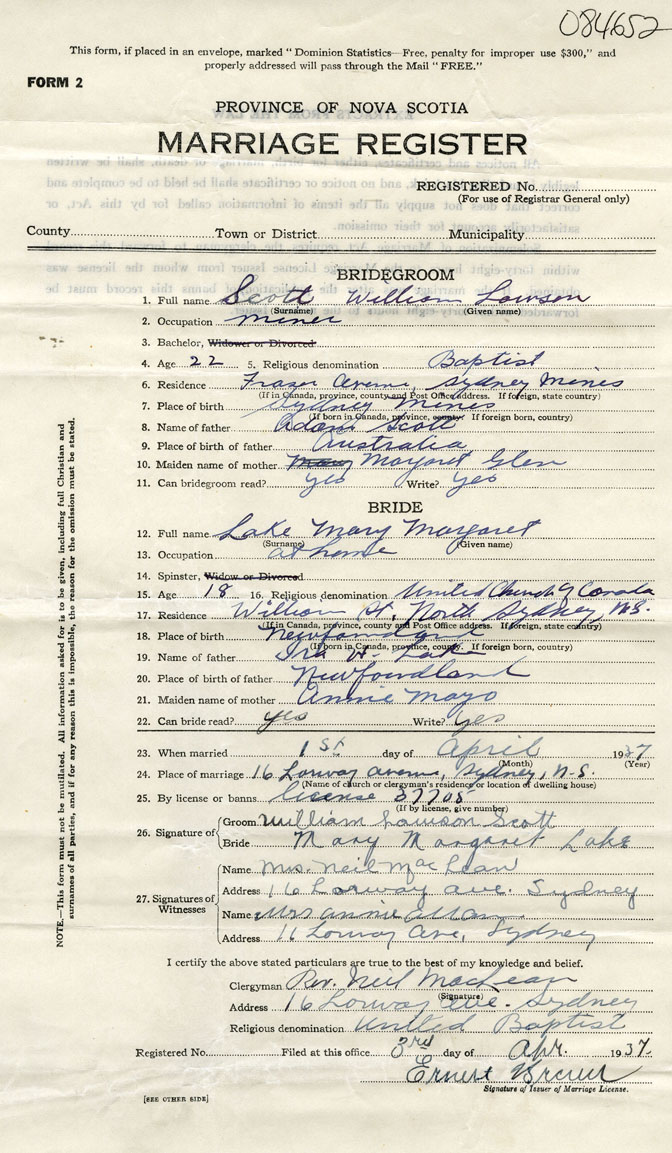 084652
This form, if placed in an envelope, marked "Dominion Statistics—Free, penalty for improper use $300," and
properly addressed will pass through the Mail "FREE."
FORM 2
PROVINCE OF NOVA SCOTIA
MARRIAGE REGISTER
REGISTERED No.
(For use of Registrar General only)
County Town or District Municipality
BRIDEGROOM
1. Full name Scott William Lawson
(Surname) (Given name)
2. Occupation miner
3. Bachelor, Widower or Divorced
4. Age 22 5. Religious denomination Baptist
6. Residence Fraser Avenue, Sydney Mines
(If in Canada, province, county and Post Office address. If foreign, state country)
7. Place of birth Sydney Mines
(If born in Canada, province, county. If foreign born, country)
8. Name of father Adam Scott
9. Place of birth of father Australia
10. Maiden name of mother Mary Margaret Glen
11. Can bridegroom read? yes Write? yes
BRIDE
12. Full name Lake Mary Margaret
(Surname) (Given name)
13. Occupation at home
14. Spinster, Widow or Divorced
15. Age 18 16. Religious denomination United Church of Canada
17. Residence William St, North Sydney, N.S.
(If in Canada, province, county and Post Office address. If foreign, state country)
18. Place of birth Newfoundland
(If born in Canada, province, county. If foreign born, country)
19. Name of father Ira H. Lake
20. Place of birth of father Newfoundland
21. Maiden name of mother Annie Mayo
22. Can bride read? yes Write? yes
23. When married 1st day of April 1937
(Month) (Year)
24. Place of marriage 16 Lorway Avenue, Sydney, N.S.
(Name of church or clergyman's residence or location of dwelling house)
25. By license or banns license 37705
(If by license, give number)
26. Signature of Groom William Lawson Scott
Bride Mary Margaret Lake
27. Signatures of Witnesses
Name Mrs. Neil MacLean
Address 16 Lorway Ave. Sydney
Name Mrs Annie Allan
Address 11 Lorway Ave, Sydney
I certify the above stated particulars are true to the best of my knowledge and belief.
Clergyman Rev. Neil MacLean
(Signature)
Address 16 Lorway Ave. Sydney
Religious denomination United Baptist
Registered No. Filed at this office 3rd day of Apr. 1937.
Ernest
Signature of Issuer of Marriage License.
[SEE OTHER SIDE]
NOTE.—This form must not be mutilated. All information asked for is to be given, including full Christian and
surnames of all parties, and if for any reason this is impossible, the reason for the omission must be stated.